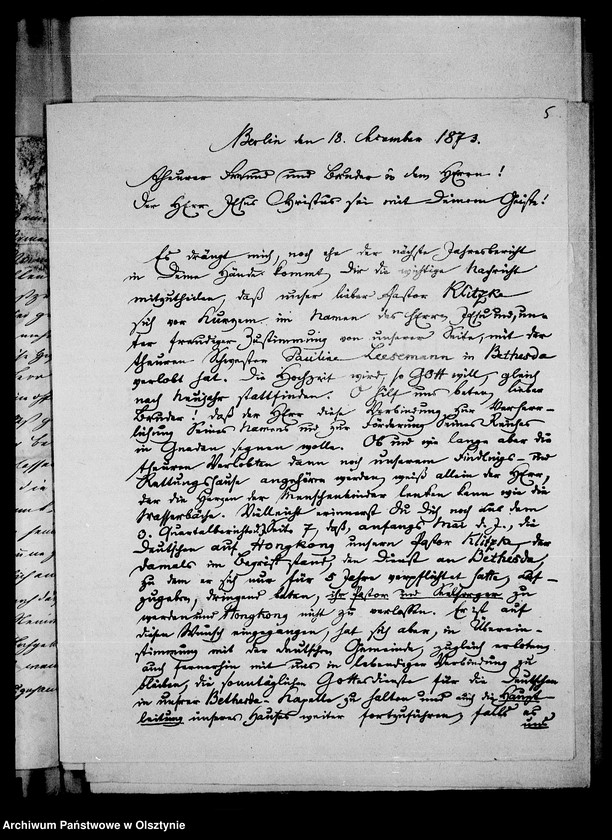 5
Berlin den 18. December 1873.
Theurer Freund und Bruder in dem Herrn!
Der Herr Jesus Christus sei mit Deinem Geiste!
Es drängt mich, noch ehe der nächste Jahresbericht
in Deine Hände kommt, Dir die wichtige Nachricht
mitzutheilen, daß unser lieber Pastor Klitzke
sich vor Kurzem im Namen des Herrn Jesu und, un-
ter freudiger Zustimmung von unserer Seite, mit der
theuren Schwester Pauline Leesemann in Bethesda
verlobt hat. Die Hochzeit wird, so Gott will, gleich
nach Neujahr stattfinden. O hilf uns beten, lieber
Bruder! daß der Herr diese Verbindung zur Verherr-
lichung Seines Namens und zur Förderung Seines Reiches
in Gnaden segnen wolle. Ob und wie lange aber die
theuren Verlobten dann noch unserem Findlings- und
Rettungshause angehören werden, weiß allein der Herr,
der die Herzen der Menschenkinder lenken kann wie die
Wasserbäche. Vielleicht erinnerst Du Dich noch aus dem
Quartalbericht Seite 7, daß, anfangs Mai d. J., die
Deutschen auf Hongkong unsern Pastor Klitzke, der
damals im Begriff stand, den Dienst an Bethesda,
zu dem er sich nur für 5 Jahre verpflichtet hatte, auf-
zugeben, dringend baten, ihr Pastor und Seelsorger zu
werden und Hongkong nicht zu verlassen. Er ist auf
diesen Wunsch eingegangen, hat sich aber, in Überein-
stimmung mit der deutschen Gemeinde, zugleich erboten,
auch fernerhin mit uns in lebendiger Verbindung zu
bleiben, die sonntäglichen Gottesdienste für die Deutschen
in unsrer Bethesda-Kapelle zu halten und auch die Haupt
leitung unseres Hauses weiter fortzuführen, falls es
uns
Archiwum Państwowe w Olsztynie